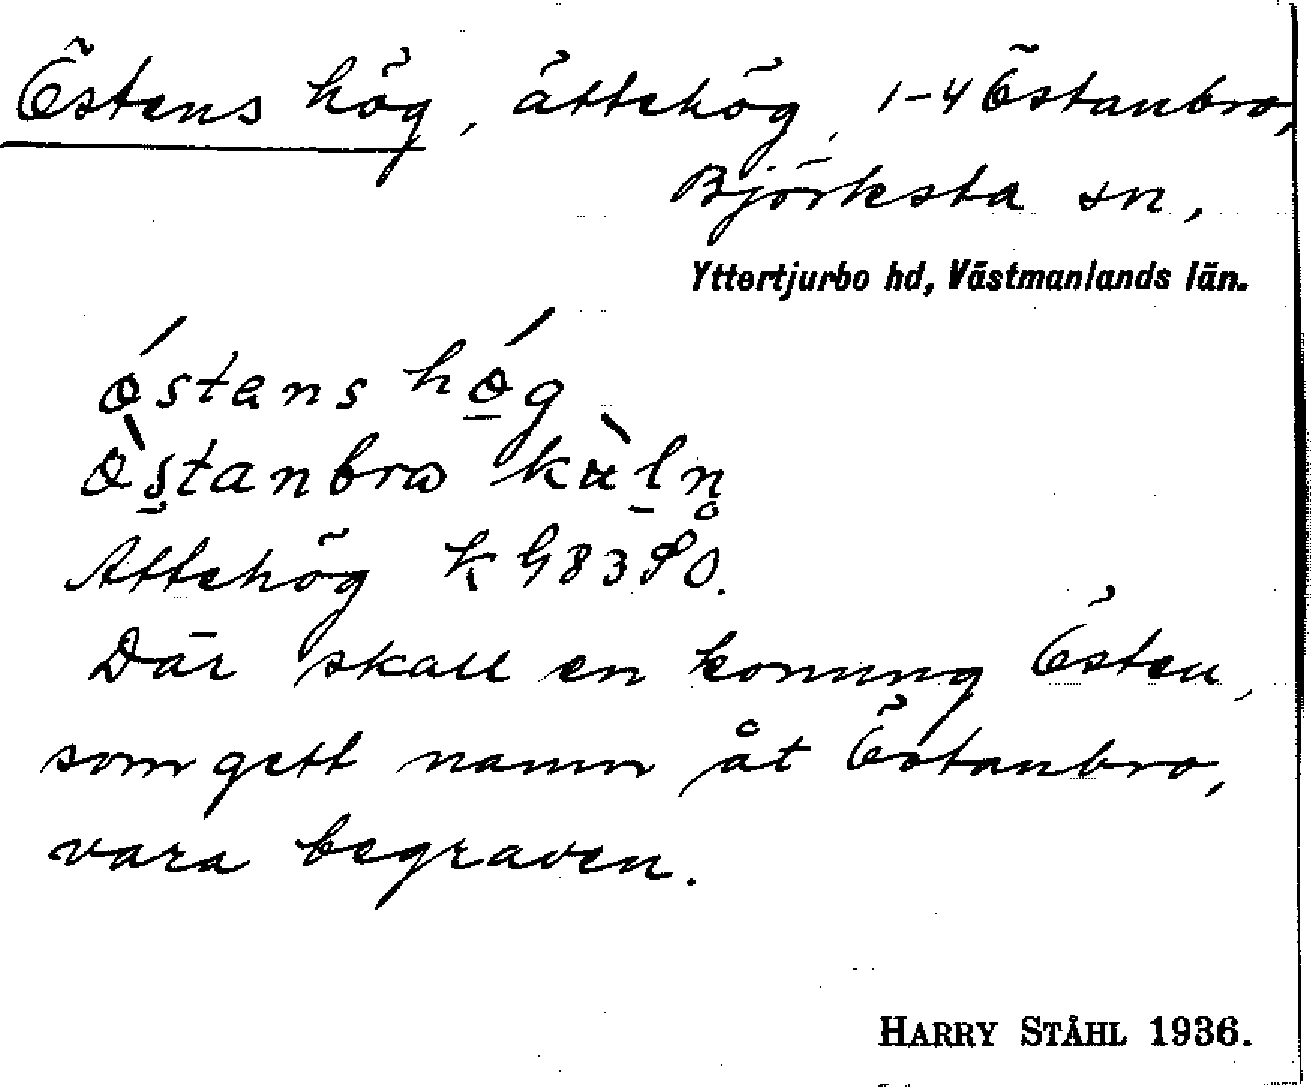 Östens hög, ättehög, 1-4 Östanbro,
Björksta sn,
Yttertjurbo hd, Västmanlands län.
östans hög
östanbro
Ättehög k 4983 SO.
Där skall en konung Östen,
som gett namn åt Östanbro,
vara begraven.
HARRY STÅHL 1936.